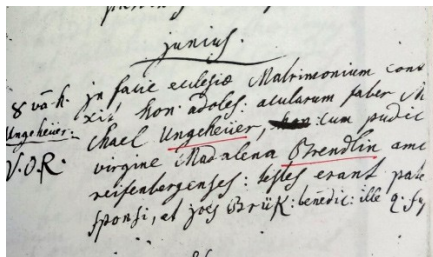 junius.
8vâ h. jn facie ecclesiæ Matrimonium cont
xit hon: adoles: acularum faber M
Ungeheüer: chael Ungeheüer, cum pudic
V.O.R. virgine Madalena Brendlin am
reifenbergenses: testes erant pate
sponsi, et joês Brük: benedic: ille q. s